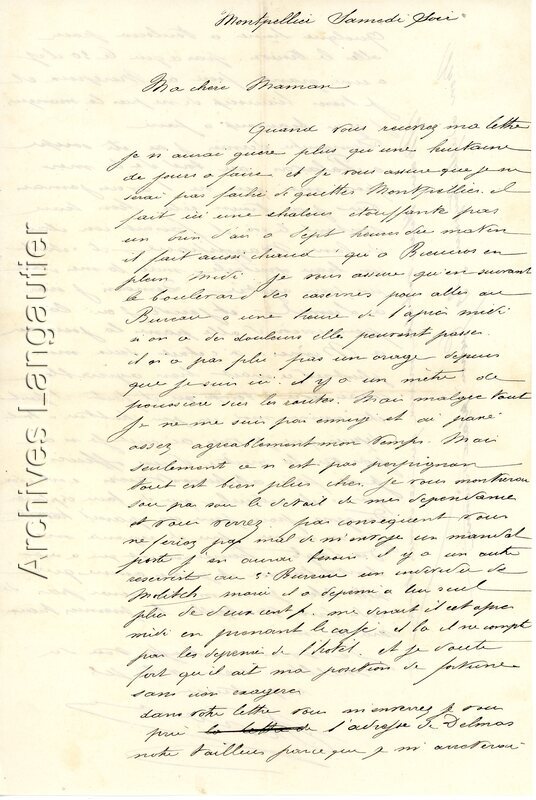 Montpellier Samedi Soir
Ma chere Maman
Quand vous recevrez ma lettre
je n aurai guère plus qu'une huitaine
de jours a faire et je vous assure que je ne
serai pas faché de quitter Montpellier. il
fait ici une chaleur etouffante pas
un brin d'air a sept heures du matin
il fait aussi chaud qu a en
plein midi je vous assure qu'en suivant
le boulevard des casernes pour aller au
Bureau a une heure de l'après midi
si on a des douleurs elles peuvent passer.
il n a pas plu pas un orage depuis
que je suis ici. il y a un mètre de
poussière sur les routes. Mai malgré tout
je ne me suis pas ennuyé et ai passé
assez agreablement mon temps. Mai
seulement ce n'est pas perpignan
tout est bien plus cher. je vous montrerai
sou par sou le detail de mes dependance
et vous verrez. par consequent vous
ne feriez pas mal de m'envoye un mandat
poste j en aurai besoin il y a un autre
reserviste au 5e Bureau un de
Molitch mari il a depense a lui seul
plus de deux cent f. me disait il cet apres
midi en prenant le café. et la il ne compte
pas les depenses de l'hotel. et je doute
fort qu'il ait ma position de fortune
sans rien exagerer
dans votre lettre vous m'enverrez je vous
prie la lettre de l'adresse de Delmas
notre tailleur parce que je m'arreterai
Archives Langautier